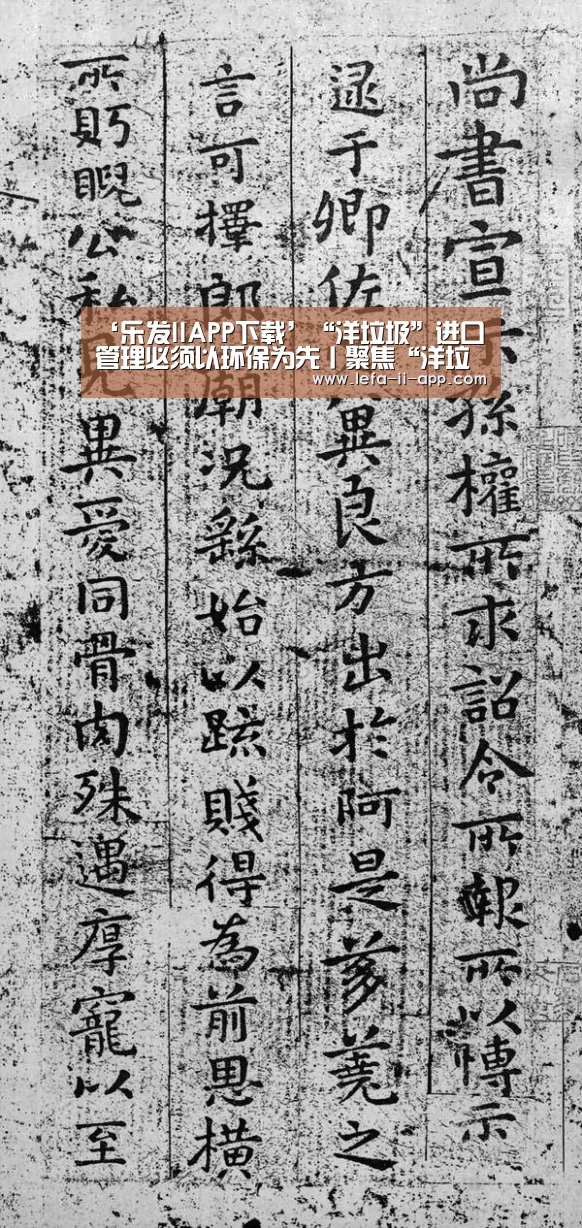 尚書宣示孫權所求詔令所報所以博示
逮于卿佐冀良方出於阿是芻蕘之
言可擇郎廟況繇始以疏賤得為前恩橫
所眄睨公私見異愛同骨肉殊遇厚寵以至
‘乐发IIAPP下载’“洋垃圾”进口
管理必须以环保为先丨聚焦“洋垃
www.lefa-ii-app.com